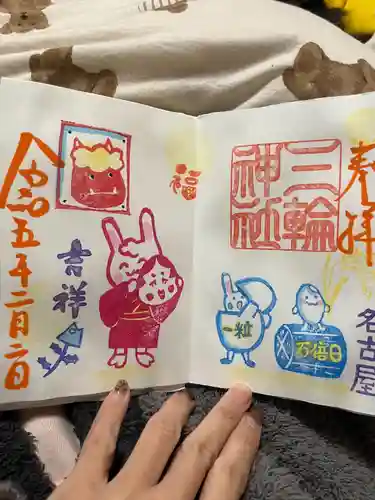 奉拝
三輪
神社
名古屋
一粒
万倍日
福
吉祥
令和五年二月二日